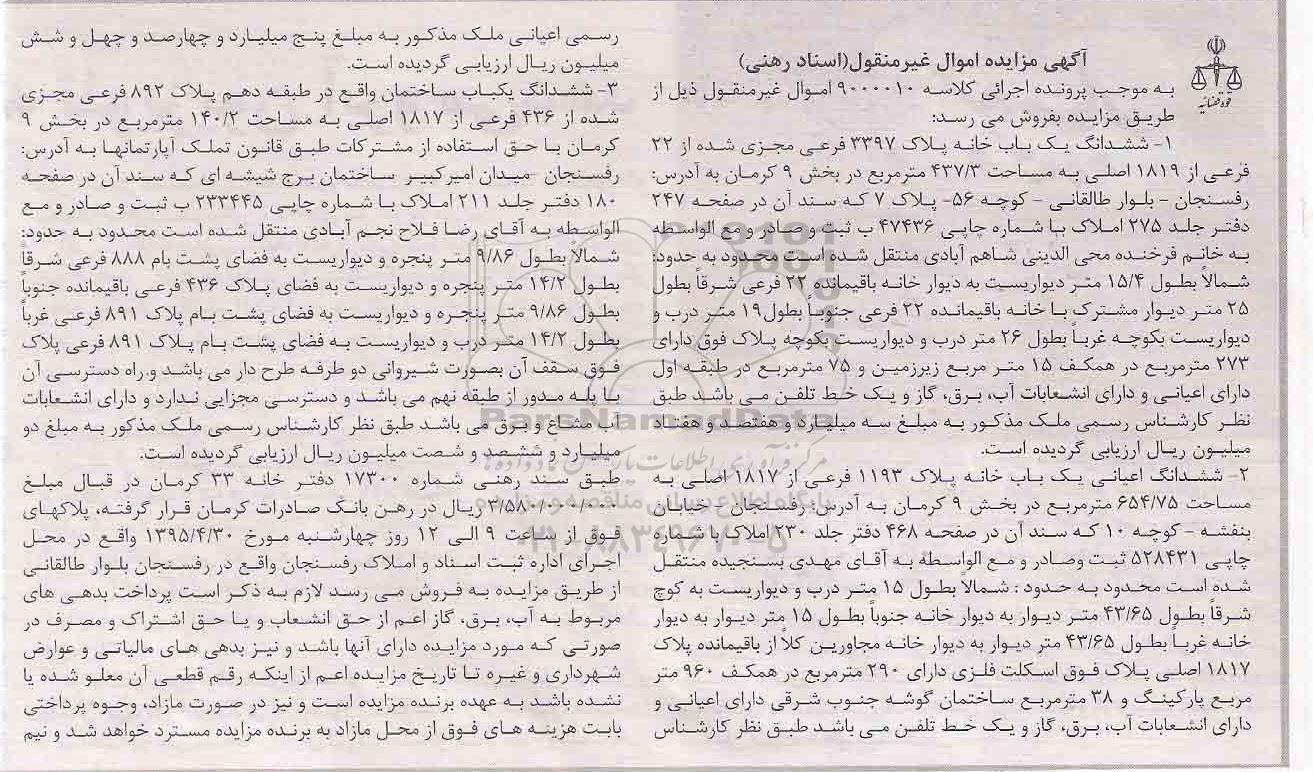 آگهی مزایده اموال غیرمنقول(اسناد رهنی)
قوه قضائیه
به موجب پرونده اجرائی کلاسه ۹۰۰۰۰۱۰ اموال غیرمنقول ذیل از
طریق مزایده بفروش می رسد:
۱- ششدانگ یک باب خانه پلاک ۳۳۹۷ فرعی مجزی شده از ۲۲
فرعی از ۱۸۱۹ اصلی به مساحت ۴۳۷/۳ مترمربع در بخش ۹ کرمان به آدرس:
رفسنجان - بلوار طالقانی - کوچه ۵۶- پلاک ۷ که سند آن در صفحه ۲۴۷
دفتر جلد ۲۷۵ املاک با شماره چاپی ۴۷۴۳۶ ب ثبت و صادر و مع الواسطه
به خانم فرخنده محی الدینی شاهم آبادی منتقل شده است محدود به حدود:
شمالاً بطول ۱۵/۴ متر دیواریست به دیوار خانه باقیمانده ۲۲ فرعی شرقاً بطول
۲۵ متر دیوار مشترک با خانه باقیمانده ۲۲ فرعی جنوباً بطول۱۹ متر درب و
دیواریست بکوچه غرباً بطول ۲۶ متر درب و دیواریست بکوچه پلاک فوق دارای
۲۷۳ مترمربع در همکف ۱۵ متر مربع زیرزمین و ۷۵ مترمربع در طبقه اول
دارای اعیانی و دارای انشعابات آب، برق، گاز و یک خط تلفن می باشد طبق
نظر کارشناس رسمی ملک مذکور به مبلغ سه میلیارد و هفتصد و هفتاد
میلیون ریال ارزیابی گردیده است.
۲- ششدانگ اعیانی یک باب خانه پلاک ۱۱۹۳ فرعی از ۱۸۱۷ اصلی به
مساحت ۶۵۴/۷۵ مترمربع در بخش ۹ کرمان به آدرس: رفسنجان - خیابان
بنفشه - کوچه ۱۰ که سند آن در صفحه ۴۶۸ دفتر جلد ۲۳۰ املاک با شماره
چاپی ۵۲۸۴۳۱ ثبت وصادر و مع الواسطه به آقای مهدی بسنجیده منتقل
شده است محدود به حدود : شمالاً بطول ۱۵ متر درب و دیواریست به کوچ
شرقاً بطول ۴۳/۶۵ متر دیوار به دیوار خانه جنوباً بطول ۱۵ متر دیوار به دیوار
خانه غرباً بطول ۴۳/۶۵ متر دیوار به دیوار خانه مجاورین کلاً از باقیمانده پلاک
۱۸۱۷ اصلی پلاک فوق اسکلت فلزی دارای ۲۹۰ مترمربع در همکف ۹۶۰ متر
مربع پارکینگ و ۳۸ مترمربع ساختمان گوشه جنوب شرقی دارای اعیانی و
دارای انشعابات آب، برق، گاز و یک خط تلفن می باشد طبق نظر کارشناس
رسمی اعیانی ملک مذکور به مبلغ پنج میلیارد و چهارصد و چهل و شش
میلیون ریال ارزیابی گردیده است.
۳- ششدانگ یکباب ساختمان واقع در طبقه دهم پلاک ۸۹۲ فرعی مجزی
شده از ۴۳۶ فرعی از ۱۸۱۷ اصلی به مساحت ۱۴۰/۲ مترمربع در بخش ۹
کرمان با حق استفاده از مشترکات طبق قانون تملک آپارتمانها به آدرس:
رفسنجان -میدان امیرکبیر ساختمان برج شیشه ای که سند آن در صفحه
۱۸۰ دفتر جلد ۲۱۱ املاک با شماره چاپی ۲۳۳۴۴۵ ب ثبت و صادر و مع
الواسطه به آقای رضا فلاح نجم آبادی منتقل شده است محدود به حدود:
شمالاً بطول ۹/۸۶ متر پنجره و دیواریست به فضای پشت بام ۸۸۸ فرعی شرقاً
بطول ۱۴/۲ متر پنجره و دیواریست به فضای پلاک ۴۳۶ فرعی باقیمانده جنوباً
بطول ۹/۸۶ متر پنجره و دیواریست به فضای پشت بام پلاک ۸۹۱ فرعی غرباً
بطول ۱۴/۲ متر درب و دیواریست به فضای پشت بام پلاک ۸۹۱ فرعی پلاک
فوق سقف آن بصورت شیروانی دو طرفه طرح دار می باشد و راه دسترسی آن
با پله مدور از طبقه نهم می باشد و دسترسی مجزایی ندارد و دارای انشعابات
آب مشاع و برق می باشد طبق نظر کارشناس رسمی ملک مذکور به مبلغ دو
میلیارد و ششصد و شصت میلیون ریال ارزیابی گردیده است.
طبق سند رهنی شماره ۱۷۳۰۰ دفتر خانه ۳۳ کرمان در قبال مبلغ
ریال در رهن بانک صادرات کرمان قرار گرفته، پلاکهای
فوق از ساعت ۹ الی ۱۲ روز چهارشنبه مورخ ۱۳۹۵/۴/۳۰ واقع در محل
اجرای اداره ثبت اسناد و املاک رفسنجان واقع در رفسنجان بلوار طالقانی
از طریق مزایده به فروش می رسد لازم به ذکر است پرداخت بدهی های
مربوط به آب، برق، گاز اعم از حق انشعاب و یا حق اشتراک و مصرف در
صورتی که مورد مزایده دارای آنها باشد و نیز بدهی های مالیاتی و عوارض
شهرداری و غیره تا تاریخ مزایده اعم از اینکه رقم قطعی آن معلو شده یا
نشده باشد به عهده برنده مزایده است و نیز در صورت مازاد، وجوه پرداختی
بابت هزینه های فوق از محل مازاد به برنده مزایده مسترد خواهد شد و نیم
ParsNamadData